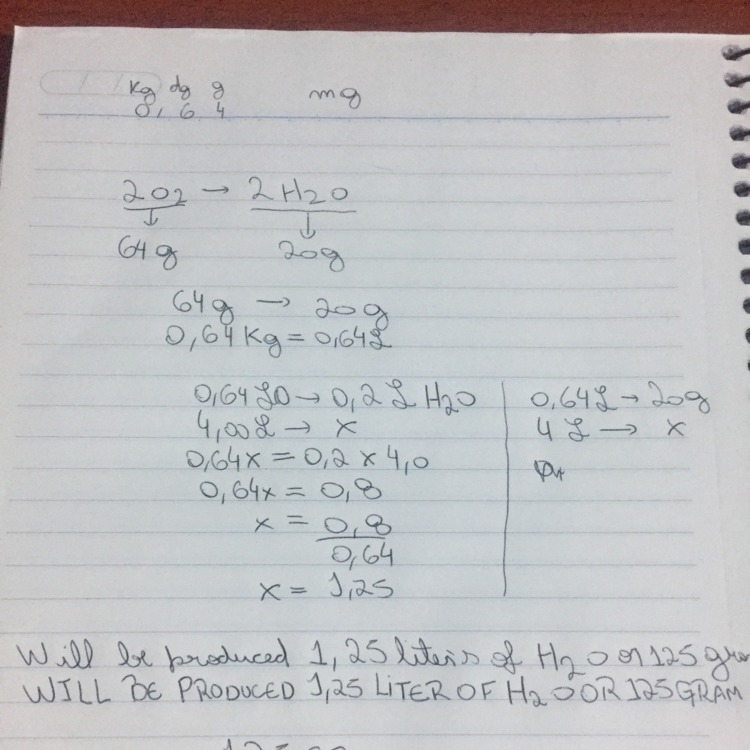 Kg dg g mg
0, 6 4
2O2 → 2H2O
64g 20g
64g → 20g
0,64Kg = 0,64L
0,64LO → 0,2L H2O
4,00L → x
0,64x = 0,2 x 4,0
0,64x = 0,8
x = 0,8
0,64
x = 1,25
0,64L → 20g
4L → x
Will be produced 1,25 liters of H2O or 125 gram
WILL BE PRODUCED 1,25 LITER OF H2O OR 125 GRAM